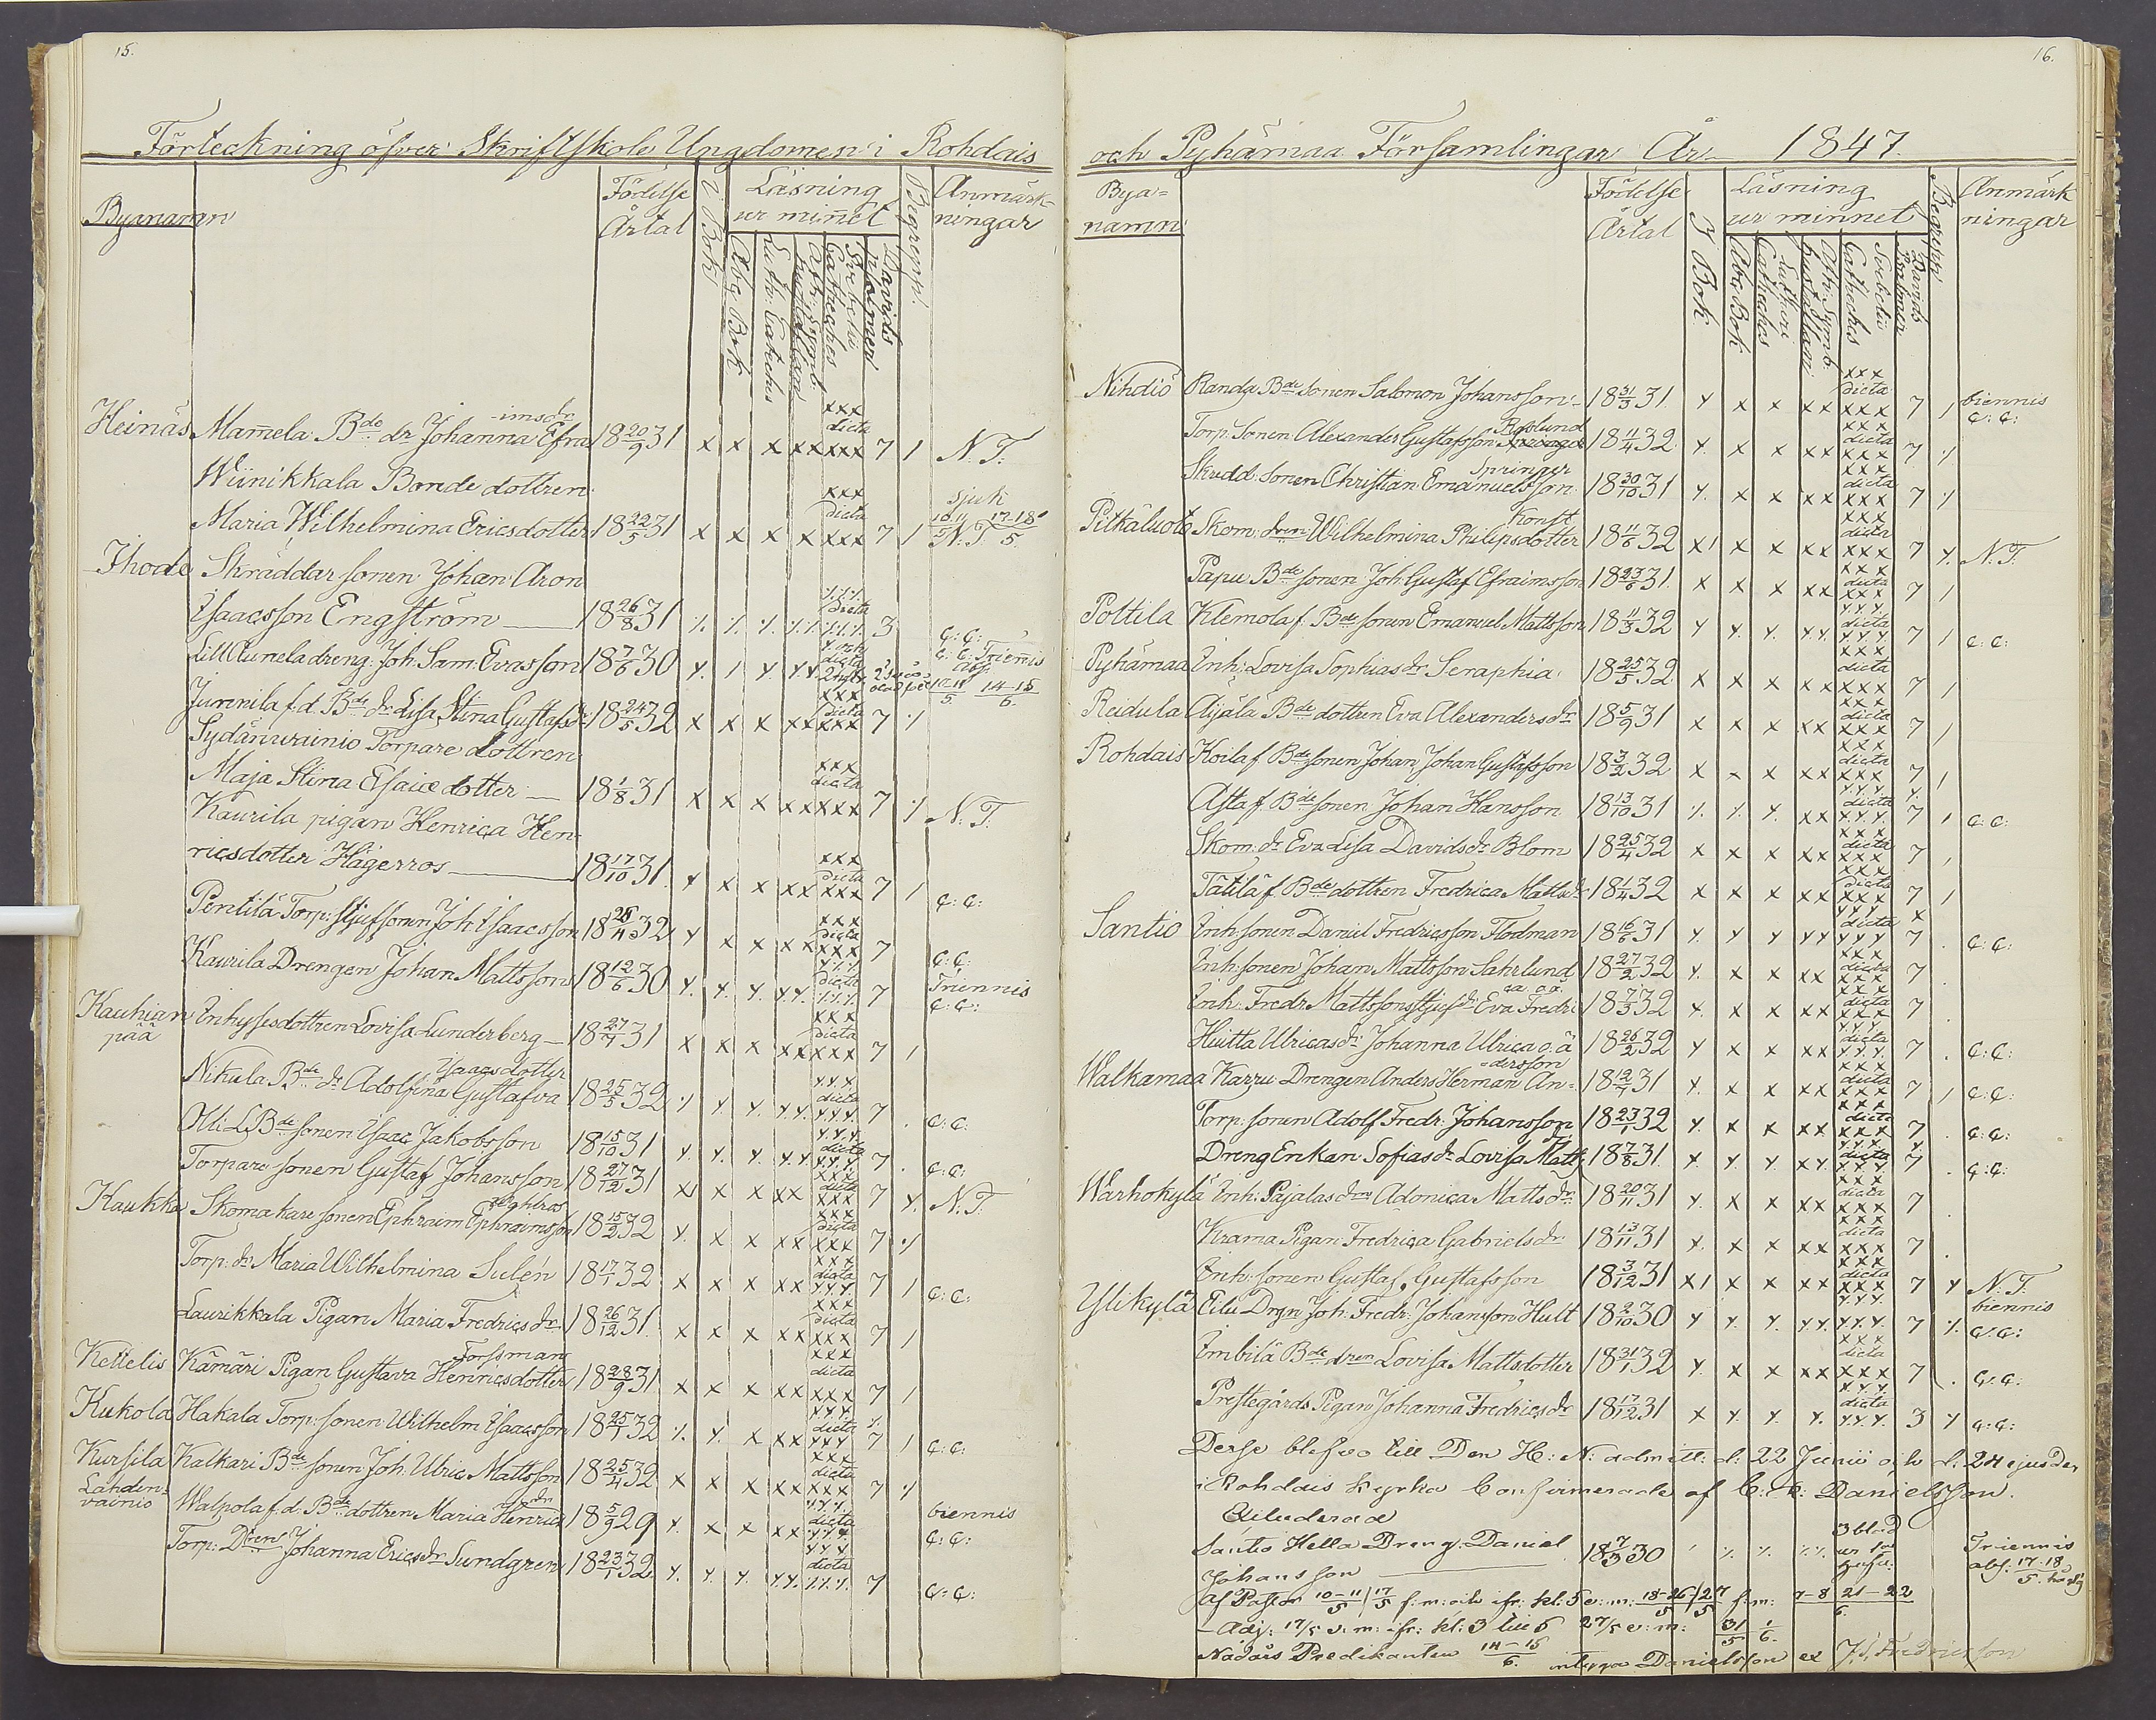 15.
Förteckning öfver Skriftskole Ungdomen i Rohdais
Byanamn
Födelse Årtal
i Bok
Läsning ur minnet
Abc Bok
Luth: Cateches
Ath: Symb.
Svebelii Cateches
Davids psalmer
Begrepp.
Anmärkningar
Heinäs Mamela B:de dr Johanna Efraimsdr 18 20/9 31 x x x xx xxx dicta xxx 7 1 N.T.
Wiinikkala Bonde dottren
Maria Wilhelmina Ericsdotter 18 22/5 31 x x x x xxx dicta xxx 7 1 sjuk N.T.
Ihode Skräddar sonen Johan Aron
Isaacsson Engström 18 26/8 31 dicta 3 C: C:
Lill Auneladreng: Joh: Sam: Evasson 18 7/6 30 C: C: Triennis
Juvenila f.d. B:de dr Lisa Stina Gustafsdr 18 24/5 32 x x x xx xxx dicta xxx 7
Sydänvainio Torpare dottren
Maja Stina Esaiæ dotter 18 1/8 31 x x x xx xxx dicta xxx 7 N.T.
Kaurila pigan Henrica Hen-
ricsdotter Hägerros 18 17/10 31 x x x xx xxx dicta xxx 7 1 C: C:
Pentilä Torp: stjufsonen Joh: Isaacsson 32 x x x xx xxx dicta xxx 7 C: C:
Kaurila Drengen Johan Mattsson 18 12/6 30 dicta 7 Triennis C: C:
Kauhian pää Inhysesdottren Lovisa Lunderberg 18 27/7 31 x x x xx xxx dicta xxx 7 1
Nikula B:de dr Adolfina Gustafva Isaacsdotter 18 25/5 32 dicta 7 . C: C:
Olli L B:de sonen Isaac Jakobsson 18 15/10 31 dicta 7 . C: C:
Torpare sonen Gustaf Johansson 18 27/12 31 x x x xx xxx dicta xxx 7 N.T.
Kaukka Skomakare sonen Ephraim Ephraimsson 18 15/2 32 x x x xx xxx dicta xxx 7
Torp: dr Maria Wilhelmina Sulén 18 17/1 32 x x x xx xxx dicta 7 1 C: C:
Laurikkala Pigan Maria Fredricsdr 18 26/12 31 x x x xx xxx dicta xxx 7 1
Kettelis Kämäri Pigan Gustava Henricsdotter Forssman 18 28/9 31 x x x xx xxx dicta xxx 7 1
Kukola Hakala Torp: sonen Wilhelm Isaacsson 18 25/1 32 dicta 7 1 C: C:
Kursila Kalkari B:de sonen Joh: Ulric Mattsson 18 25/4 32 x x x xx xxx dicta xxx 7
Lahdenvainio Walpola f.d. B:de dottren Maria Henricsdr 18 5/9 29 dicta biennis C: C:
Torp: Dren Johanna Ericsdr Sundgren 18 23/1 32 dicta 7 C: C:
16.
och Pyhämaa Församlingar År 1847.
Bya=namn
Födelse Årtal
I Bok
Läsning ur minnet
Abc Bok
Lutheri Cateches
Ath: Symb.
Svebelii Cateches
Davids Psalmer
Begrepp
Anmärkningar
Nihdiö Randa B:de sonen Salomon Johansson 18 31/3 31 x x x xx xxx dicta xxx 7 1 biennis C: C:
Torp: Sonen Alexander Gustafsson Roslund 18 11/4 32 x x x xx xxx dicta xxx 7
Skredd: sonen Christian Emanuelsson Springer 18 30/10 31 x x x xx xxx dicta xxx 7
Pitkäluoto Skom: dren Wilhelmina Philipsdotter Konst 18 11/6 32 x1 x x xx xxx dicta xxx 7 N.T.
Papu B:de sonen Joh: Gustaf Efraimsson 18 23/6 31 x x x xx xxx dicta xxx 7 1
Poltila Klemola f. B:de sonen Emanuel Mattsson 18 11/3 32 dicta 7 1 C: C:
Pyhämaa Inh: Lovisa Sophias dr Seraphia 18 25/5 32 x x x xx xxx dicta xxx 7 1
Reidula Äijälä B:de dottren Eva Alexandersdr 18 5/9 31 x x x xx xxx dicta xxx 7 1
Rohdais Koila f B:de sonen Johan Johan Gustafsson 18 3/2 32 x x x xx xxx dicta xxx 7 1
Asta f. B:de sonen Johan Hansson 18 13/10 31 dicta 7 1 C: C:
Skom: dr Eva Lisa Davidsdr Blom 18 25/4 32 x x x xx xxx dicta xxx 7 1
Tätilä f. B:de dottren Fredrica Mattsdr 18 1/4 32 x x x xx xxx dicta xxx 7 1
Santio Inh: sonen Daniel Fredricsson Flodman 18 16/6 31 dicta 7 . C: C:
Inh: sonen Johan Mattsson Sahrlund 18 27/2 32 x x x xx xxx dicta xxx 7 .
Inh: Fredr: Mattssons stjufdr Eva Fredrica 18 7/3 32 x x x xx xxx dicta xxx 7 .
Huitta Ulricas dr Johanna Ulrica o. ä 18 26/2 32 dicta 7 . C: C:
Walkamaa Karru Drengen Anders Herman An=dersson 18 12/7 31 x x x xx xxx dicta xxx 7 1 C: C:
Torp: sonen Adolf Fredr: Johansson 18 23/1 32 x x x xx xxx dicta xxx 7 . C: C:
Dreng Enkan Sofias dr Lovisa Matt 18 7/8 31 dicta 7 . C: C:
Warhokylä Inh: Pajalas dren Adonica Mattsdr 18 20/11 31 x x x xx xxx dicta xxx 7 .
Krama Pigan Fredrica Gabrielsdr 18 13/11 31 x x x xx xxx dicta xxx 7 .
Inh: sonen Gustaf Gustafsson 18 3/12 31 x1 x x xx xxx dicta xxx 7 N.T.
Ylikylä Eilu Drgn Joh: Fredr: Johansson Hult 18 2/10 30 7 biennis C: C:
Имbilä B:de dren Lovisa Mattsdotter 18 31/1 32 x x x xx xxx dicta xxx 7 . C: C:
Prestegårds Pigan Johanna Fredricsdr 18 17/12 31 dicta 3 C: C:
Desse blefvo till Den H: N: admitt: d: 22 Junii och d: 24 ejusdem
i Rohdais kyrka Confirmerade af C: A: Danielsson.
Exiluderad
Santio Hella Dreng Daniel Johansson 18 7/3 30 3 blad ur Triennis abs. 17-18/5
Af Pastor 10-11/5 17/5 f:m: och ifr: kl: 5 e:m: 18-26/5 27/5 f:m: 7-8 21-22/6.
- Adj: 17/5 e:m: ifr: kl: 3 till 6 27/5 e:m: 31/5 1/6.
Nådårs Predikanten 14-15/6. Danielsson